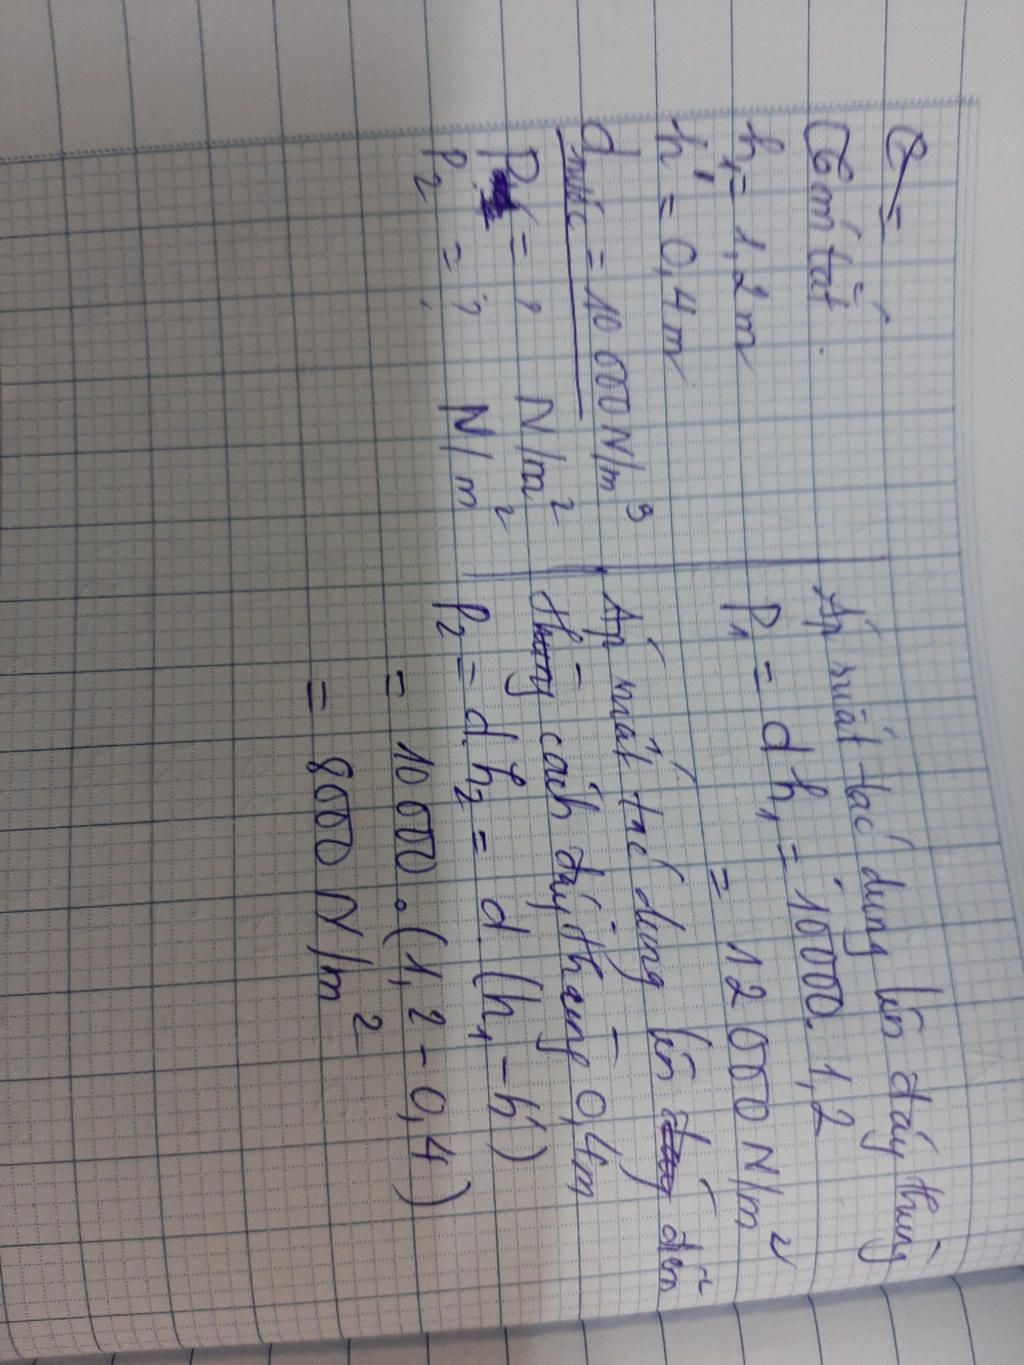 Tóm tắt.
h₁ = 1,2m
h' = 0,4m
d nước = 10 000 N/m³
P₁ = ? N/m²
P₂ = ? N/m²
Áp suất tác dụng lên đáy thùng
P₁ = d.h₁ = 10000.1,2
= 12000 N/m²
Áp suất tác dụng lên điểm
cách đáy thùng 0,4m
P₂ = d.h₂ = d.(h₁ - h')
= 10 000.(1,2 - 0,4)
= 8000 N/m²